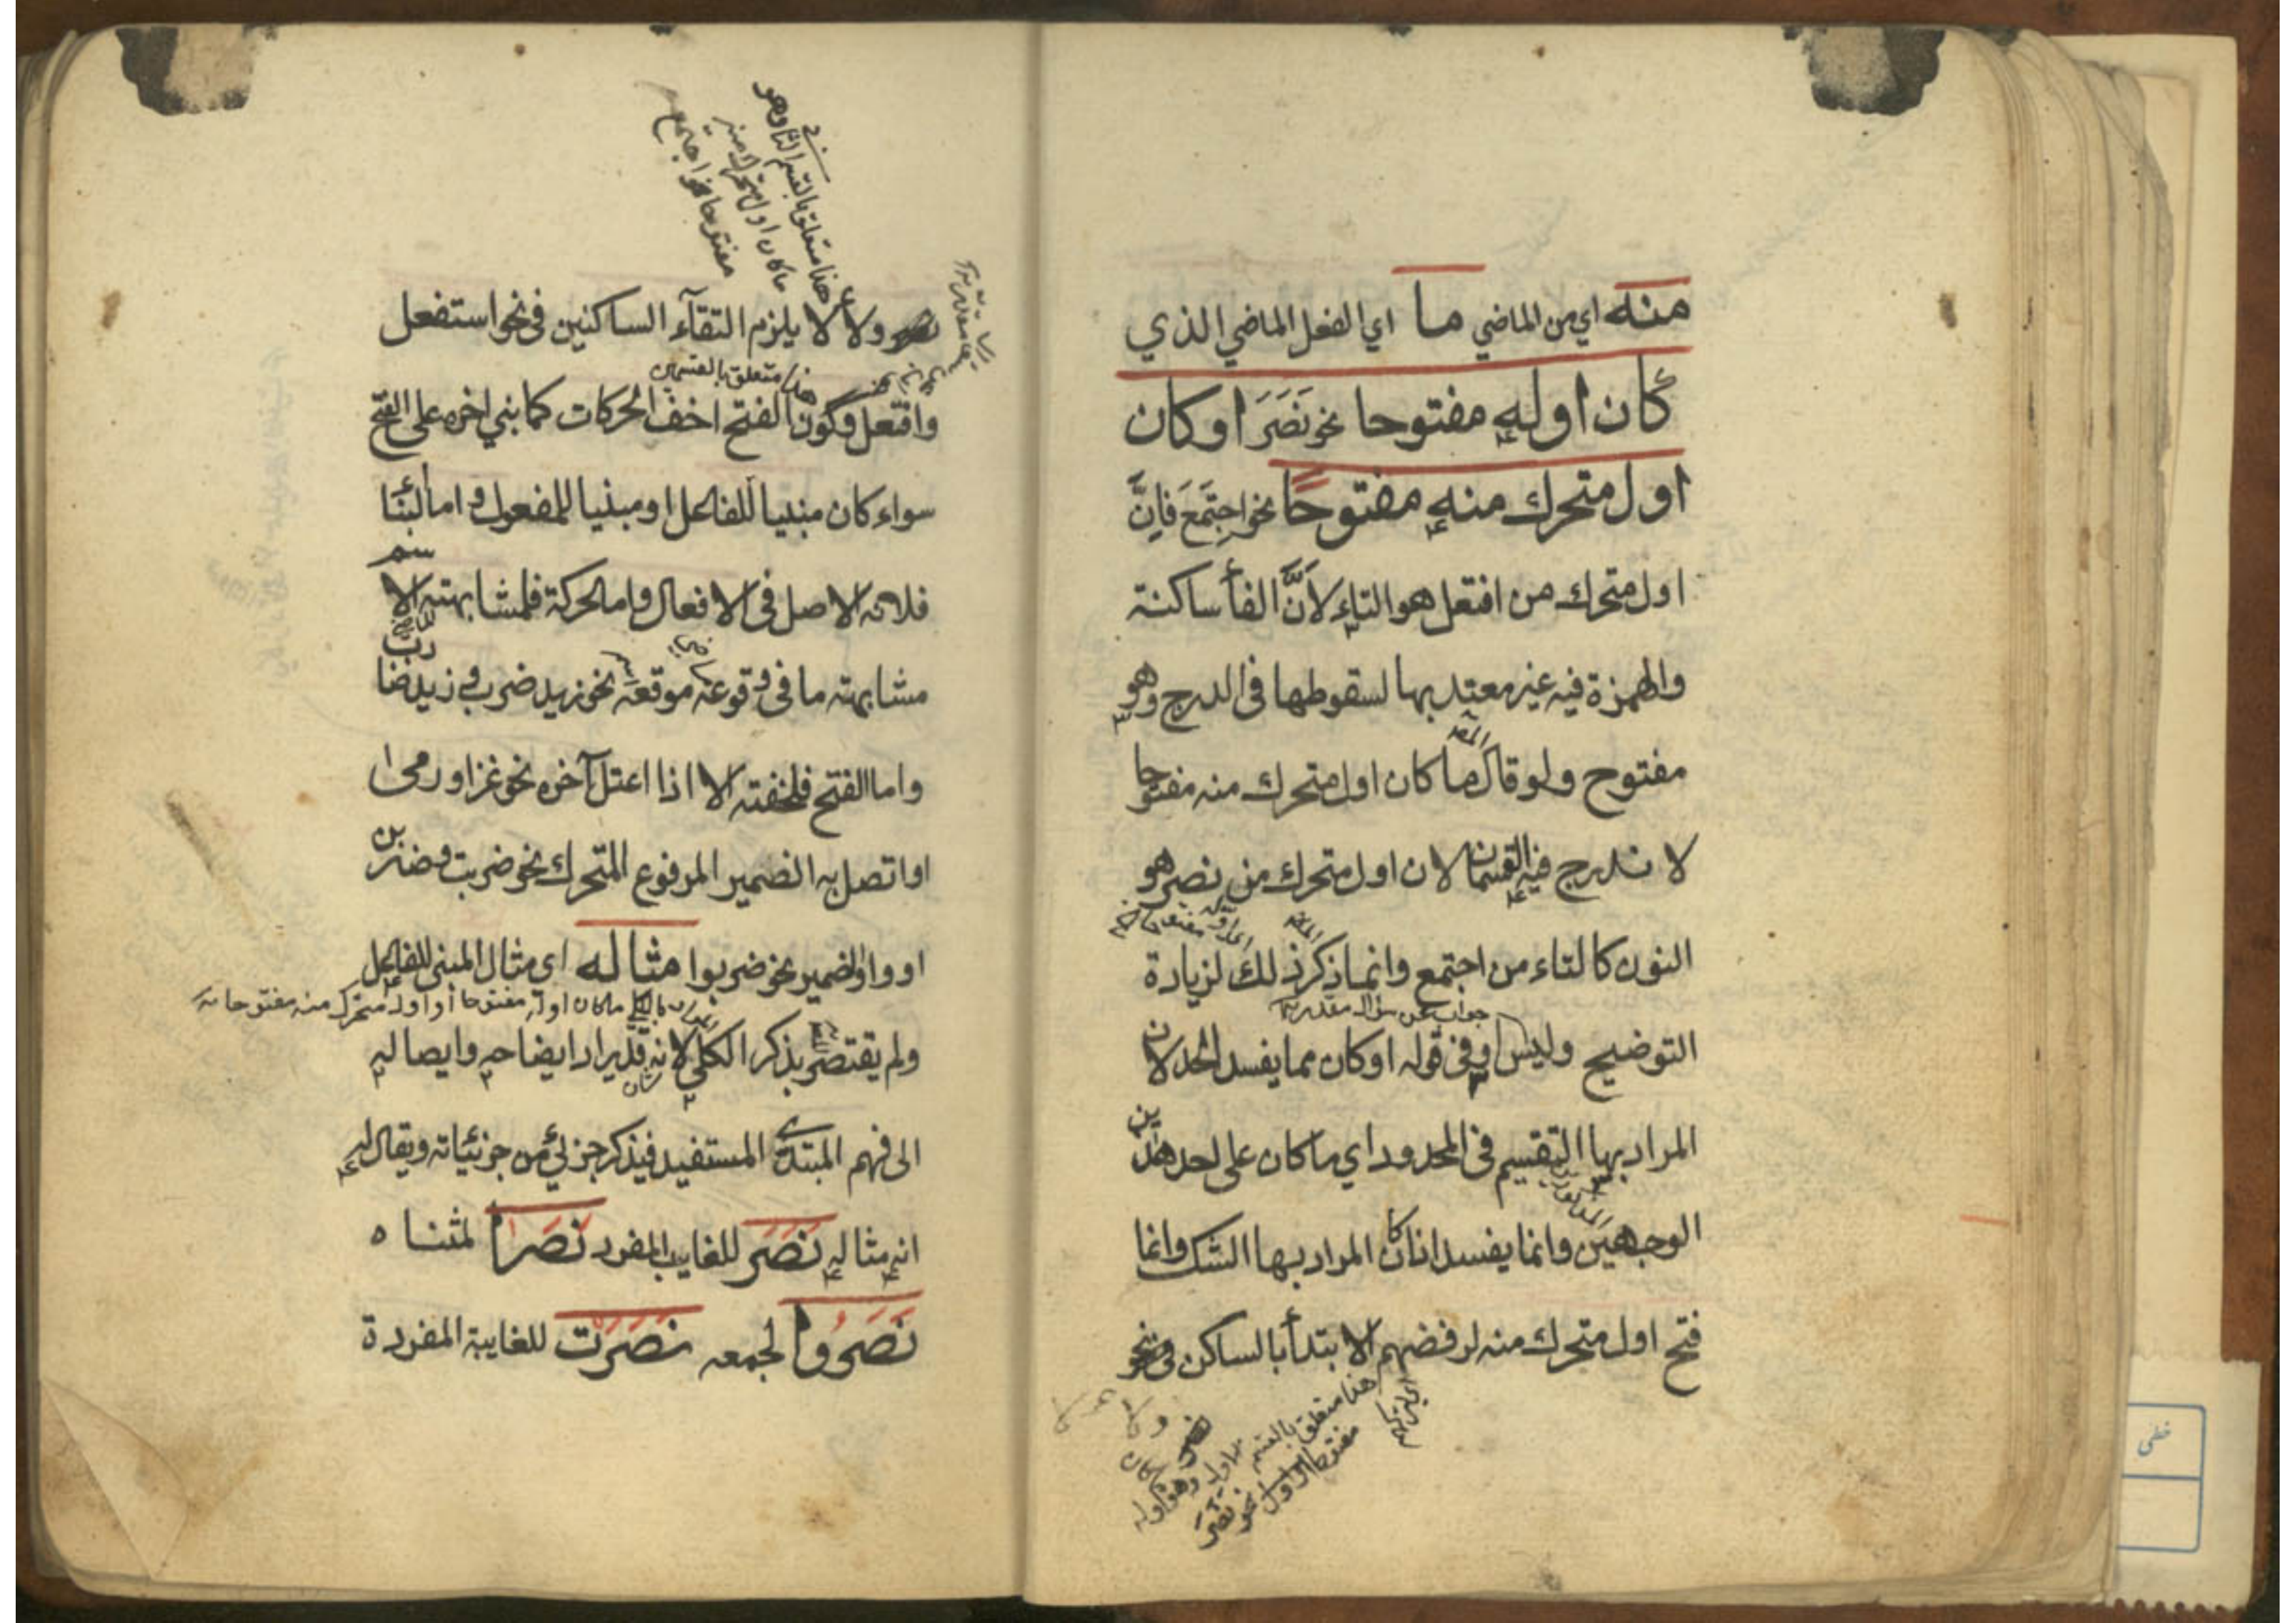 منه اي من الماضي ما اي الفعل الماضي الذي
كان اوله مفتوحا نحو نَصَرَ او كان
اول متحرك منه مفتوحًا نحو اجتَمَعَ فاِنَّ
اول متحرك من افتعل هو التاء لاَنَّ الفأ ساكنة
والهمزة فيه غير معتد بها لسقوطها فى الدرج وهو
المص
مفتوح ولو قال ما كان اول متحرك منه مفتوحا
لا ندرج فيه القسمان لان اول متحرك من نصر هو
النون كالتاء من اجتمع وانما ذكر ذلك لزيادة
جواب عن سؤال مقدر
التوضيح وليس او فى قوله او كان مما يفسد الحد لان
المراد بها التقسيم فى المحدود اي ما كان على احد هذين
الوجهين وانما يفسد ان كان المراد بها الشك وانما
فتح اول متحرك منه لرفضهم الابتدأ بالساكن
هذا متعلق بالقسم
هذا متعلق بالقسم الثا وهو
ما كان اول متحرك منه
مفتوحا نحو اجتمع
ولألا يلزم التقآء الساكنين فى نحو استفعل
هذا متعلق بالقسمين
وافتعل وكون الفتح اخف الحركات كما بني اخره على الفتح
سواء كان مبنيا للفاعل او مبنيا للمفعول و اما البنأ
فلانه الاصل فى الافعال واما الحركة فلمشابهته الاسم
مشابهته ما فى وقوعه موقعه نحو زيد ضرب و زيد ضارب
واما الفتح فلخفته الا اذا اعتل آخره نحو غزا و رمى
او اتصل به الضمير المرفوع المتحرك نحو ضربت وضربن
او واو الضمير نحو ضربوا مثاله اي مثال المبنى للفاعل
ما كان اوله مفتوحا او اول متحرك منه مفتوحا
ولم يقتصر بذكر الكلي لانه قد يراد ايضاحه وايصاله
الى فهم المبتدئ المستفيد فيذكر جزئي من جزئياته ويقال له
انه مثاله نَصَرَ للغايب المفرد نَصَرَا لمثناه
نَصَرُوا لجمعه نَصَرَتْ للغايبة المفردة